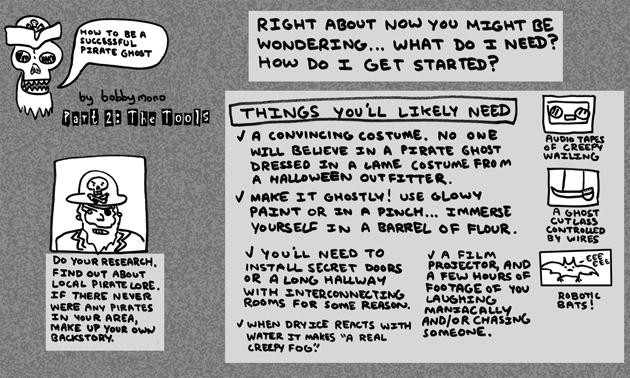 HOW TO BE A
SUCCESSFUL
PIRATE GHOST
by bobbymono
Part 2: The Tools
RIGHT ABOUT NOW YOU MIGHT BE
WONDERING... WHAT DO I NEED?
HOW DO I GET STARTED?
DO YOUR RESEARCH.
FIND OUT ABOUT
LOCAL PIRATE LORE.
IF THERE NEVER
WERE ANY PIRATES
IN YOUR AREA,
MAKE UP YOUR OWN
BACKSTORY.
THINGS YOU'LL LIKELY NEED
✓ A CONVINCING COSTUME. NO ONE
WILL BELIEVE IN A PIRATE GHOST
DRESSED IN A LAME COSTUME FROM
A HALLOWEEN OUTFITTER.
✓ MAKE IT GHOSTLY! USE GLOWY
PAINT OR IN A PINCH... IMMERSE
YOURSELF IN A BARREL OF FLOUR.
✓ YOU'LL NEED TO
INSTALL SECRET DOORS
OR A LONG HALLWAY
WITH INTERCONNECTING
ROOMS FOR SOME REASON.
✓ WHEN DRY ICE REACTS WITH
WATER IT MAKES "A REAL
CREEPY FOG."
✓ A FILM
PROJECTOR, AND
A FEW HOURS OF
FOOTAGE OF YOU
LAUGHING
MANIACALLY
AND/OR CHASING
SOMEONE.
AUDIO TAPES
OF CREEPY
WAILING
A GHOST
CUTLASS
CONTROLLED
BY WIRES
EEE
EEE
ROBOTIC
BATS!